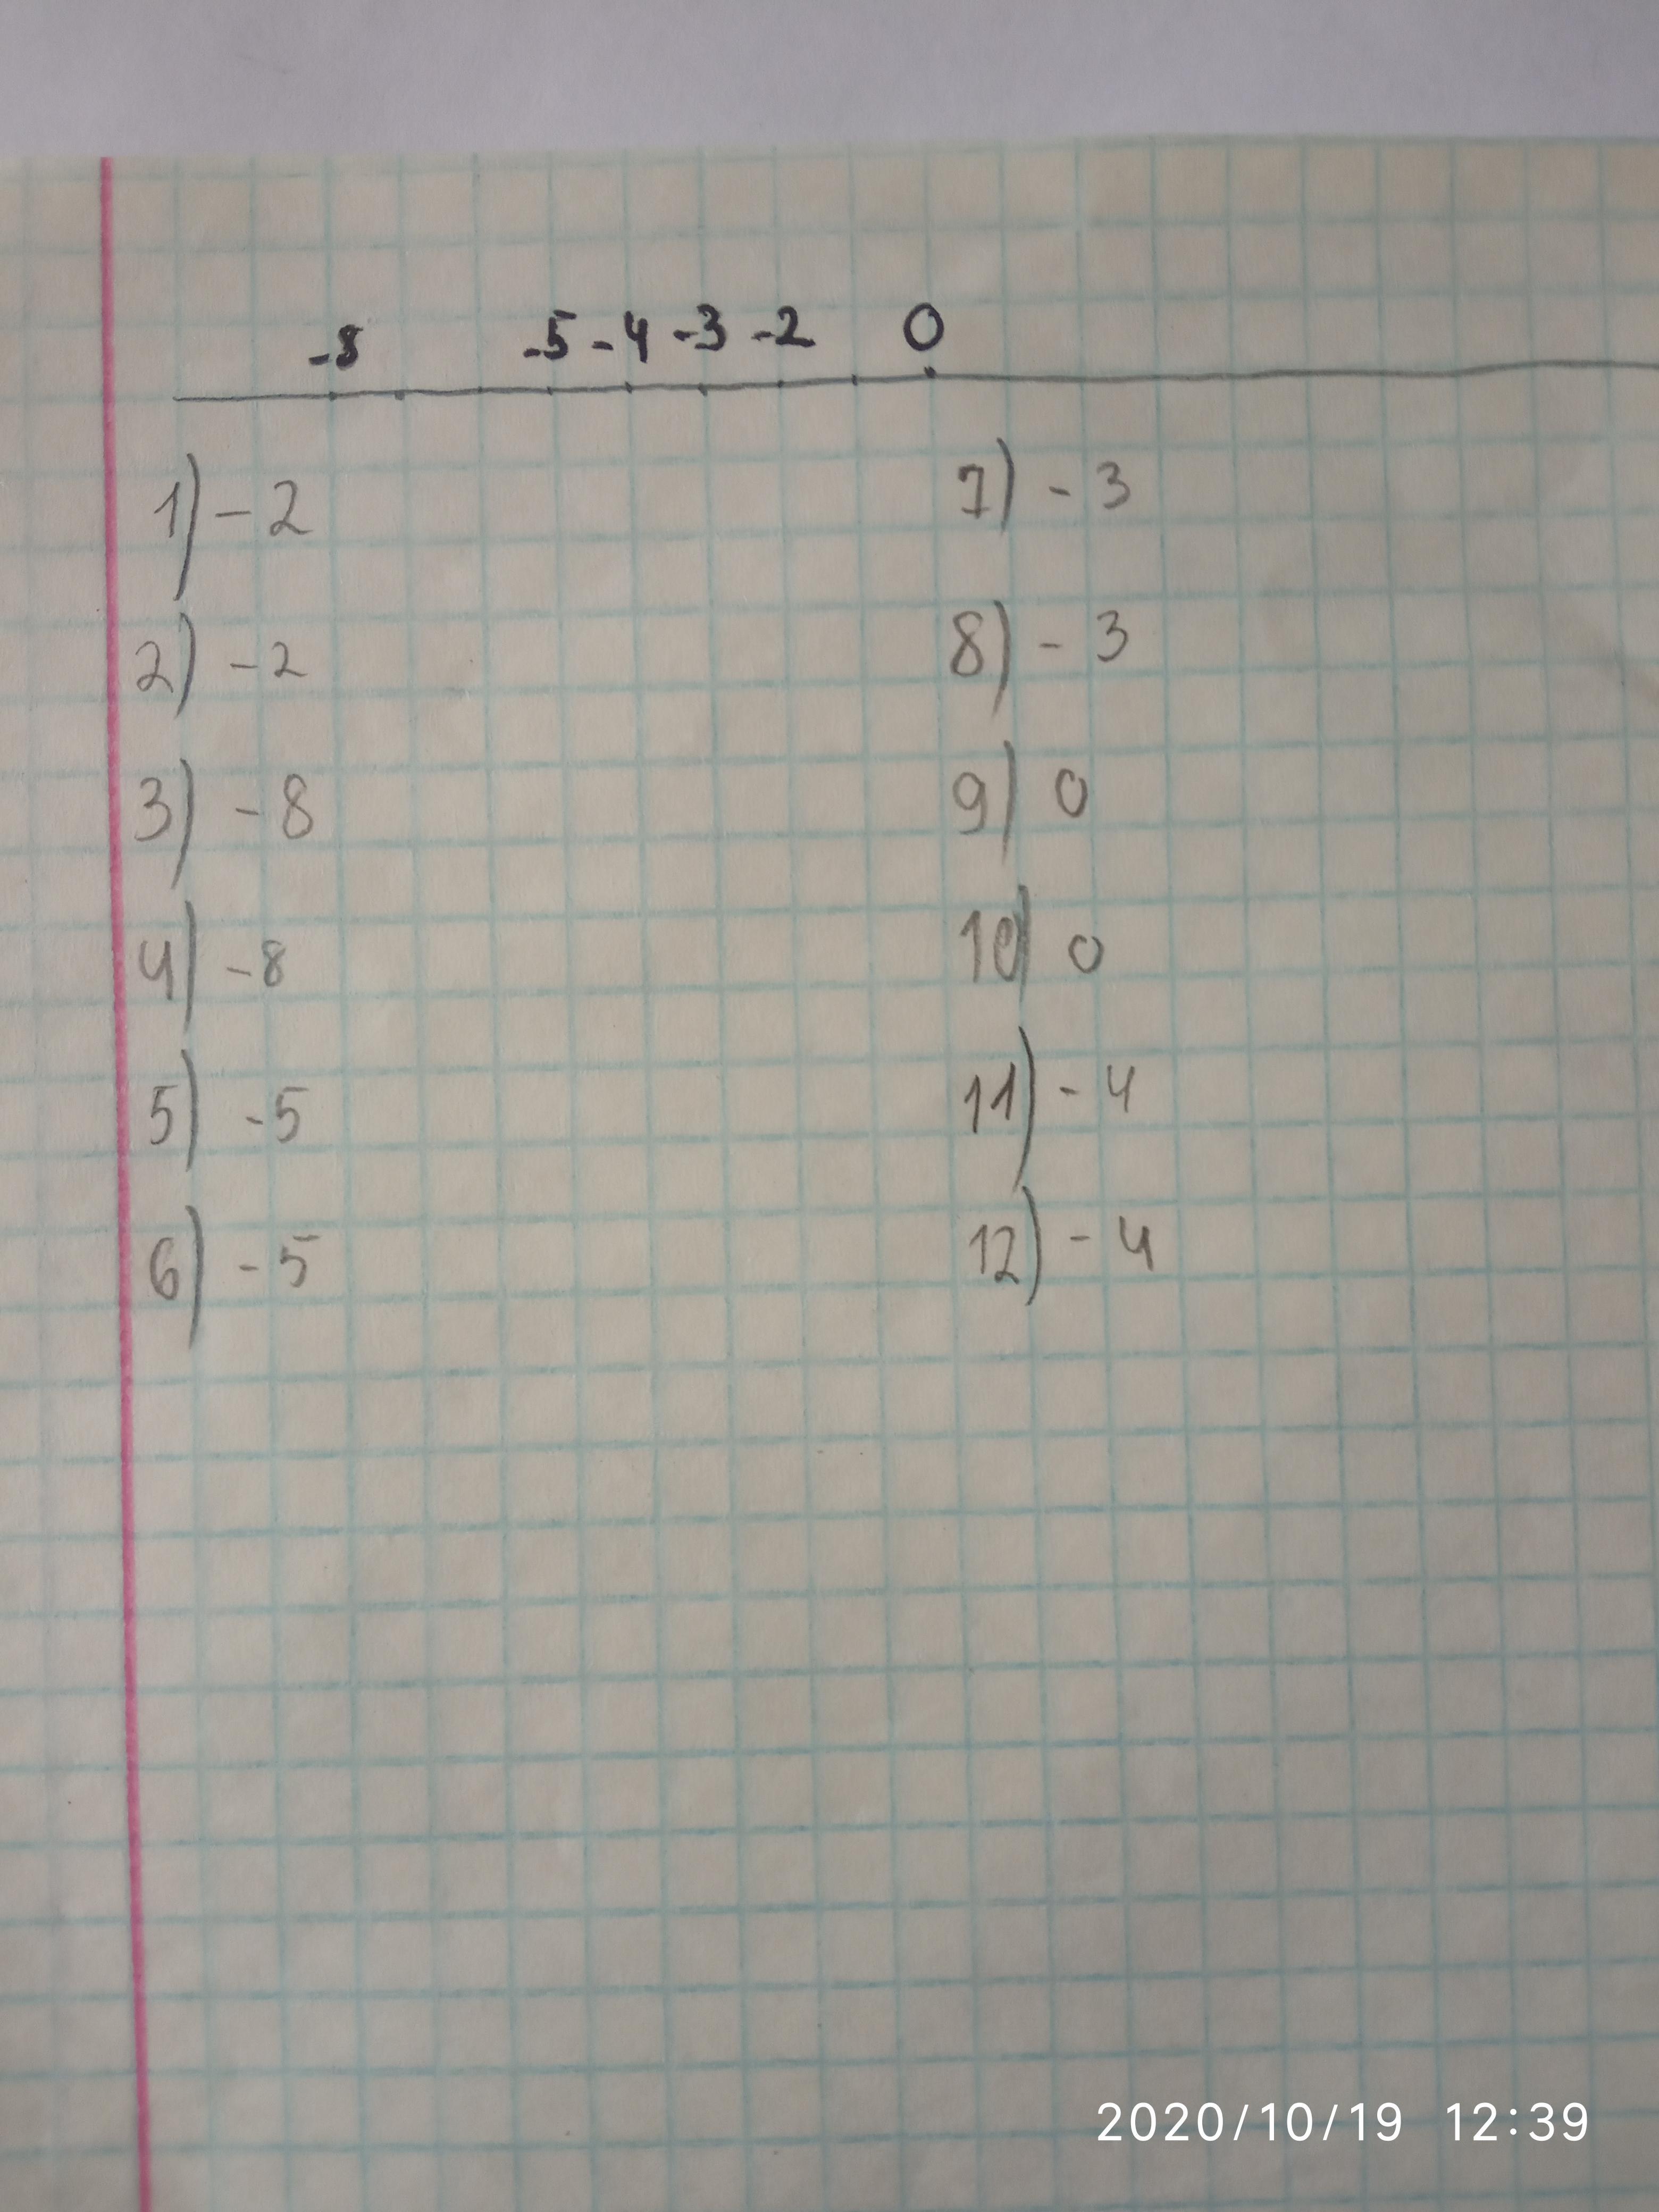 -8 -5 -4 -3 -2 0
1) -2
2) -2
3) -8
4) -8
5) -5
6) -5
7) -3
8) -3
9) 0
10) 0
11) -4
12) -4
2020/10/19 12:39